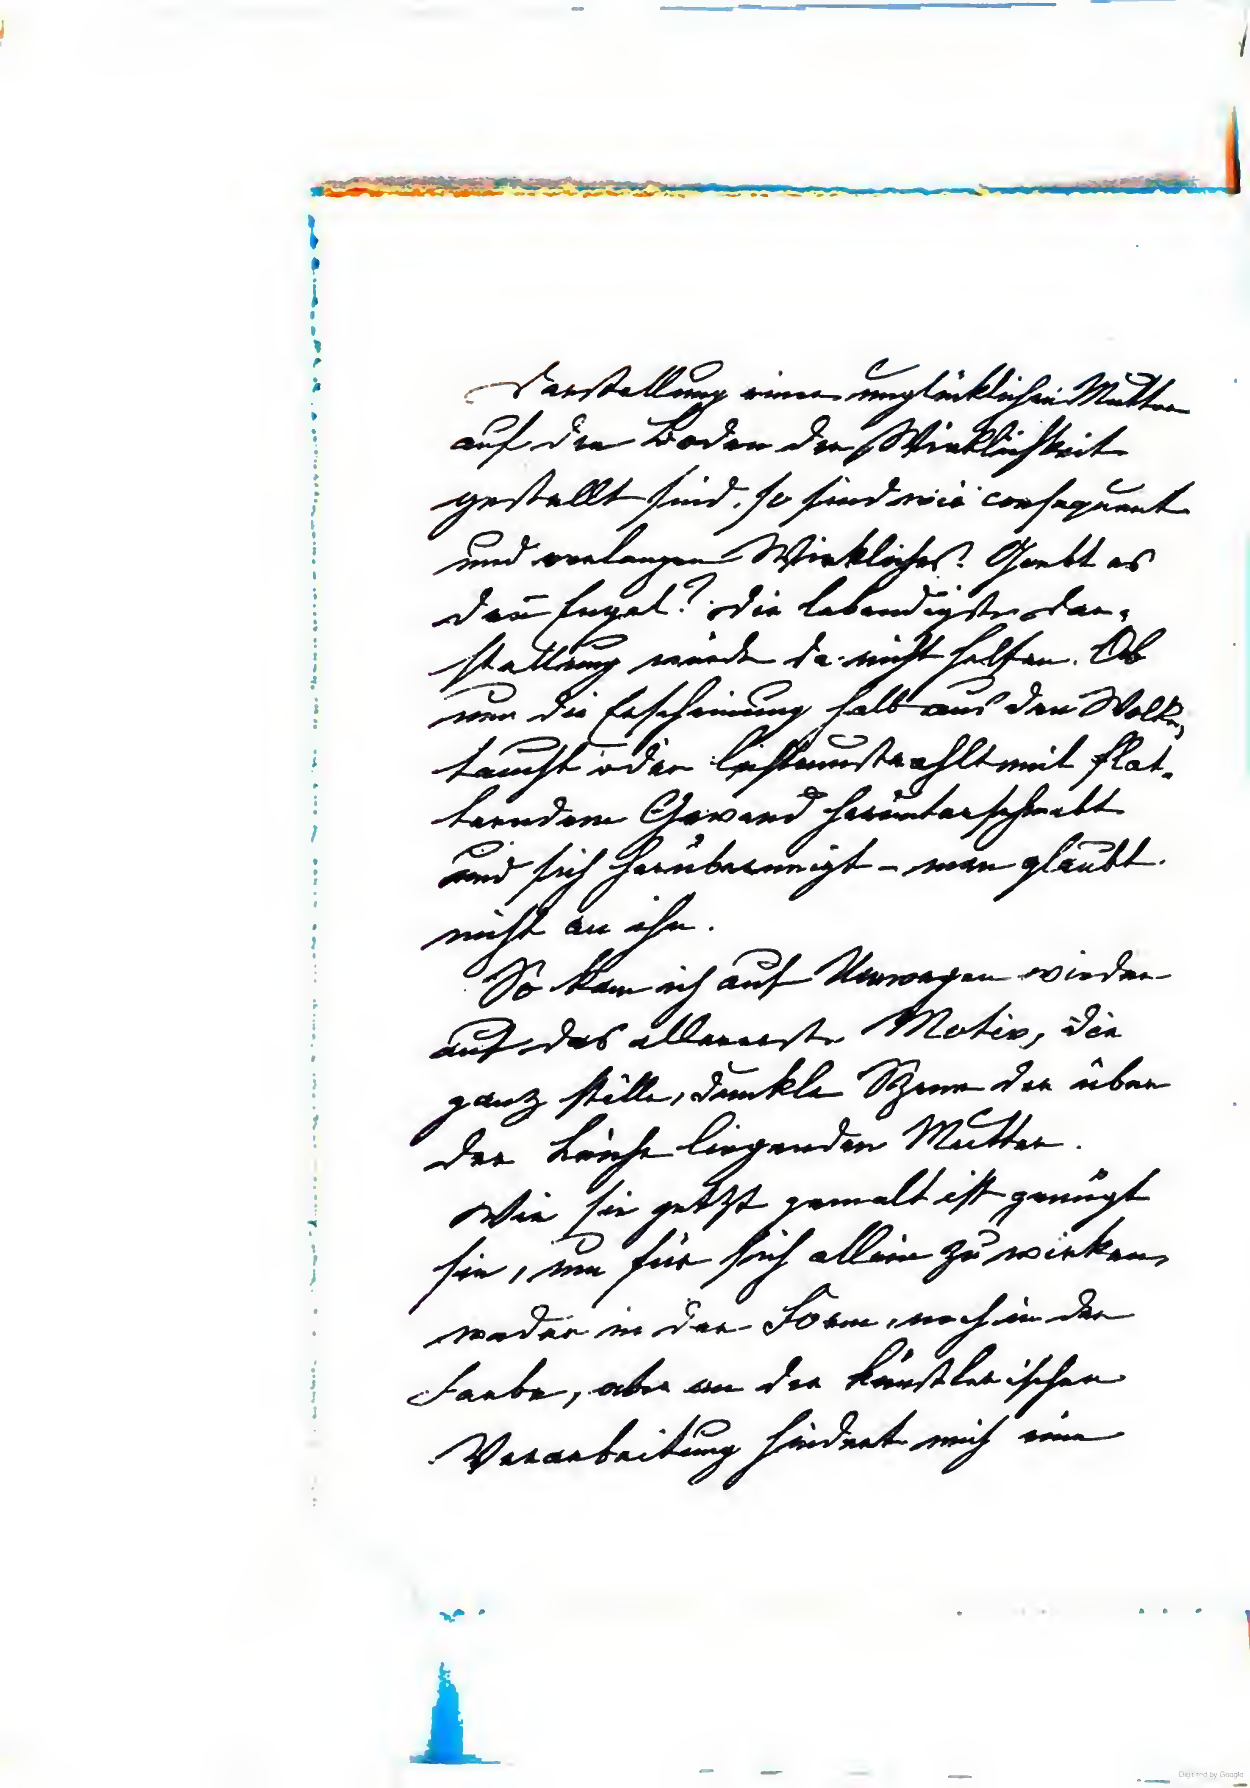 Darstellung einer unglücklichen Mutter
auf den Boden der Wirklichkeit
gestellt sind, so sind wir consequent
und verlangen Wirkliches. Giebt es
den̄ Engel? Die lebendigste Dar-
stellung würde da nicht helfen. Ob
nun die Erscheinung halb aus den Wolken
taucht oder lichtumstrahlt mit flat-
terndem Gewand herunterschwebt
und sich herüberneigt – man glaubt
nicht an ihn.
So kam ich auf Umwegen wieder
auf das allererste Motiv, die
ganz stille, dunkle Szene der über
der Leiche liegenden Mutter.
Wie sie jetzt gemalt ist genügt
sie, um für sich allein zu wirken,
weder in der Form, noch in der
Farbe, aber an der künstlerischen
Verarbeitung hindert mich eine
Digitized by Google